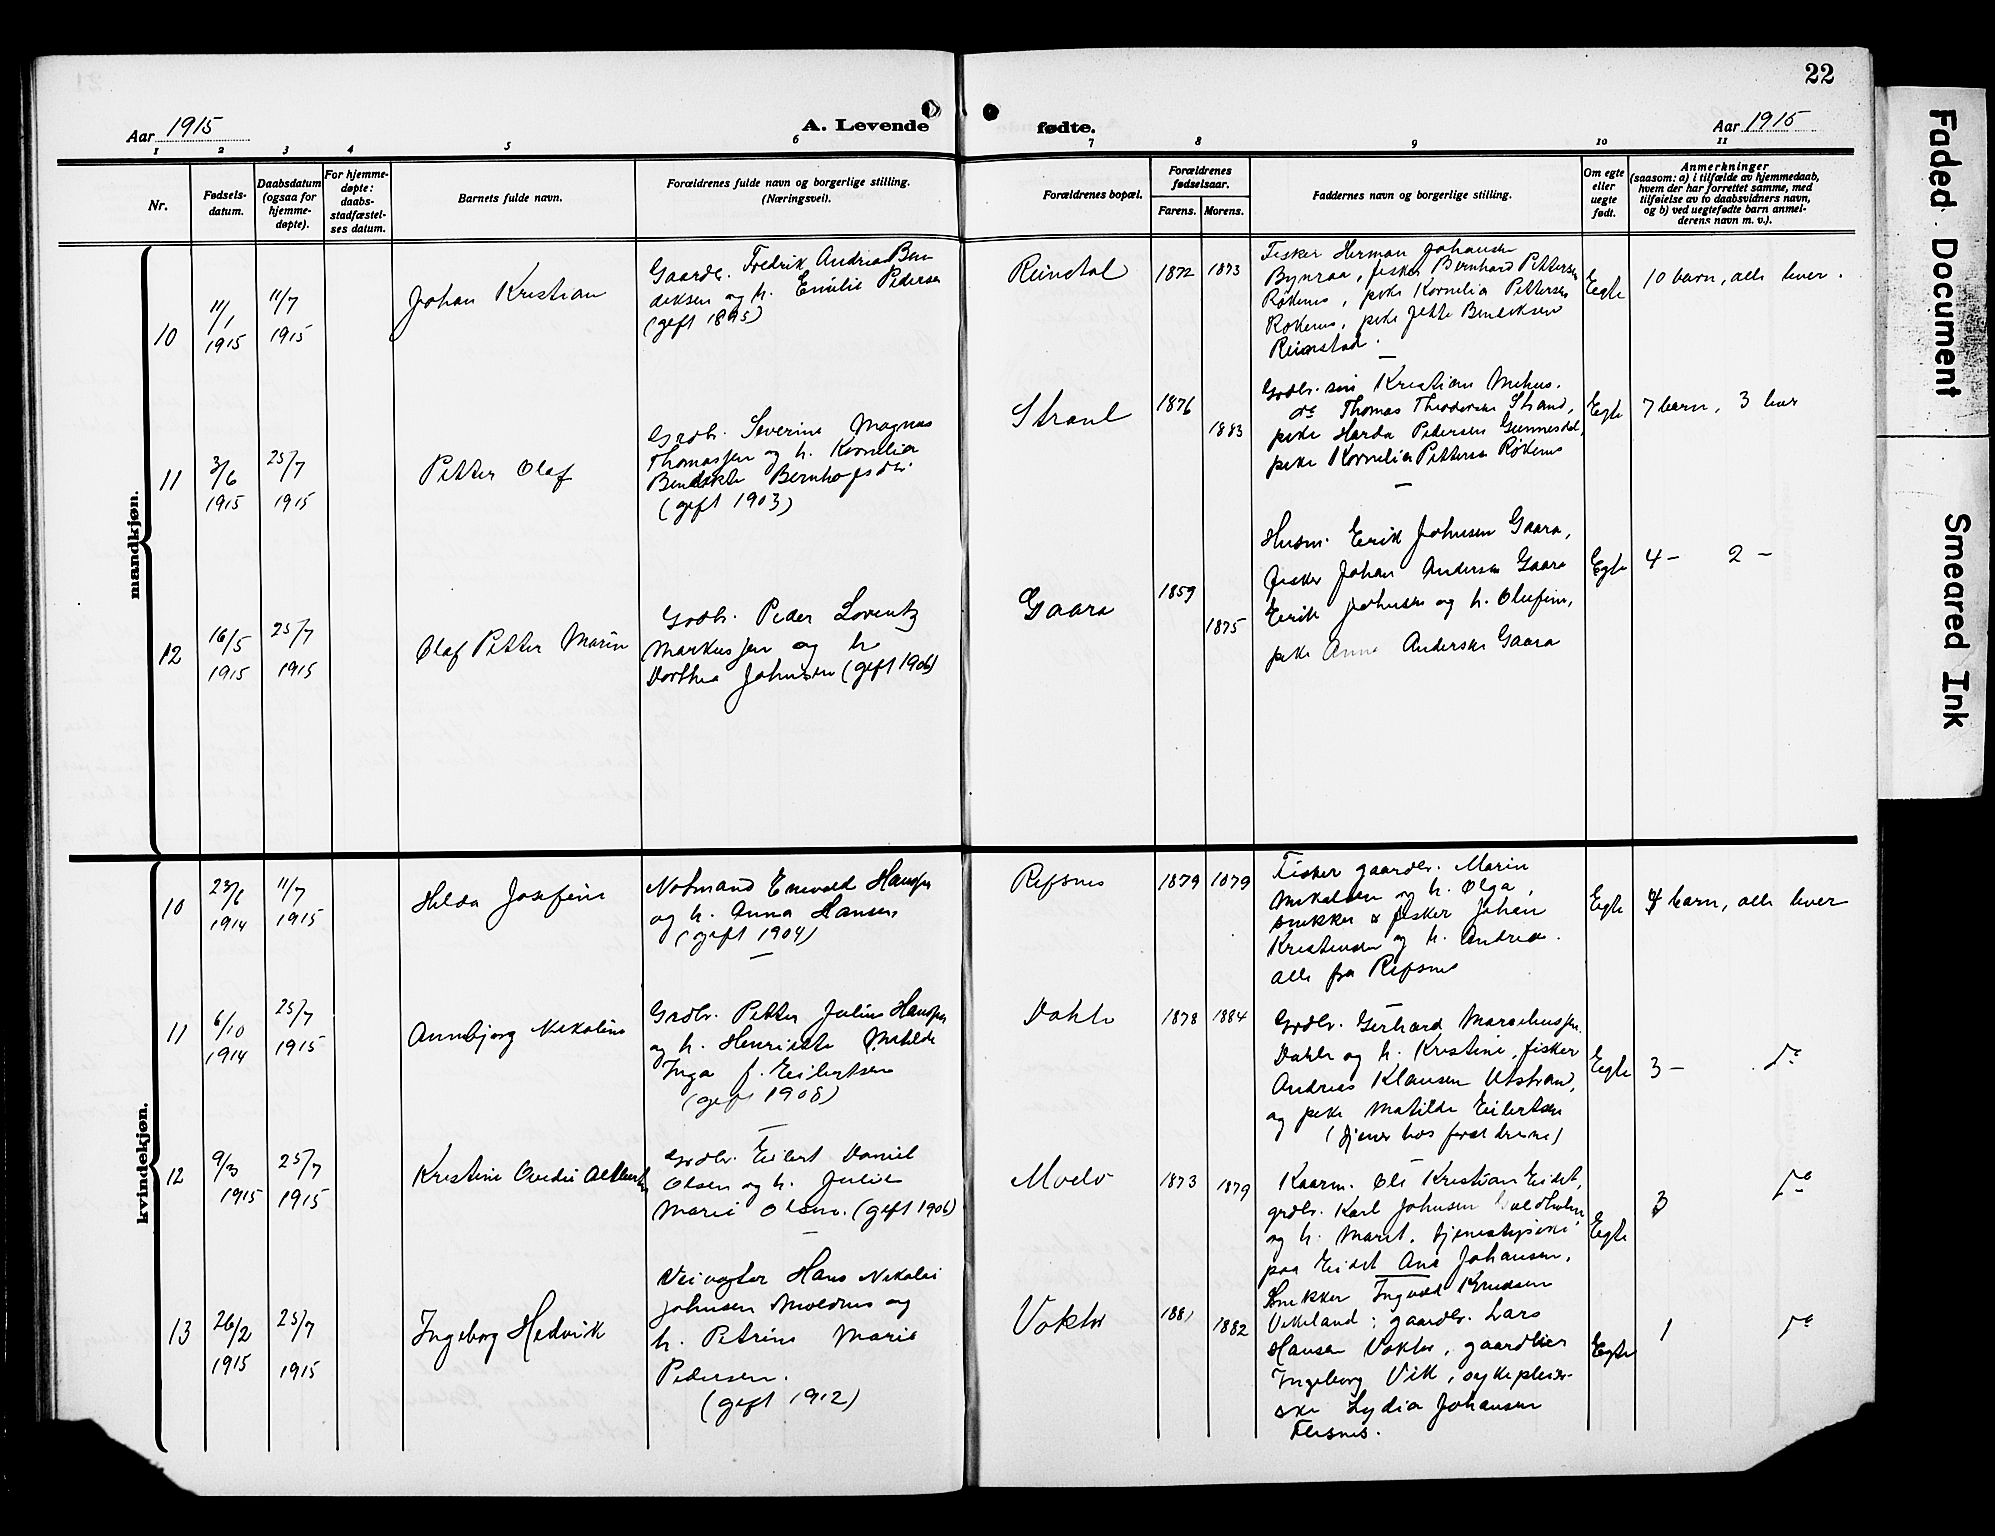 22
Aar 1915
A. Levende fødte.
Aar 1915
1 2 3 4 5 6 7 8 9 10 11
Nr.
Fødsels-
datum.
Daabsdatum
(ogsaa for
hjemme-
døpte).
For hjemme-
døpte:
daabs-
stadfæstel-
ses datum.
Barnets fulde navn.
Forældrenes fulde navn og borgerlige stilling.
(Næringsvei).
Forældrenes bopæl.
Forældrenes
fødselsaar.
Farens. Morens.
Faddernes navn og borgerlige stilling.
Om egte
eller
uegte
født.
Anmerkninger
(saasom: a) i tilfælde av hjemmedaab,
hvem der har forrettet samme, med
tilføielse av to daabsvidners navn,
og b) ved uegtefødte barn anmel-
derens navn m. v.).
mandkjøn.
10
11/1
1915
11/7
1915
Johan Kristian
Gaardb. Fredrik Andrias Ben
diksen og h. Emilie Pedersen
(gift 1895)
Reinstad
1872 1873
Fisker Herman Johansen
fisker Bernhard Pettersen
Røkenes, pike Kornelia Pettersen
Røkenes, pike Jette Bendiksen
Reinstad.
Egte
10 barn, alle lever.
11
3/6
1915
25/7
1915
Petter Olaf
Grdb. Severin Magnus
Thomassen og h. Kornelia
Bendikte
(gift 1903)
Strand
1876
1883
Grdbr. søn Kristian
do Thomas Theodorsen Strand,
pike Harda Pedersen Gunnesdal,
pike Kornelia Pettersen Røkenes
Egte
7 barn, 3 lever
12
16/5
1915
25/7
1915
Olaf Petter Marin
Grdb. Peder Lorentz
Markussen og h
Dorthea Johnsen (gift 1906)
Gaara
1859
1875
Husm. Erik Johnsen Gaara,
fisker Johan Andersen Gaara
Erik Johnsen og h. Olufine,
pike Anna Andersen Gaara
Egte
4 - 2 -
kvindekjøn.
10
23/6
1914
11/7
1915
Hilda Josefine
Notmand Enevold Hansen
og h. Anna Hansen
(gift 1904)
Refsnes
1879 1879
Fisker gaardbr. Marin
Mikalsen og h. Olga,
snekker & fisker Johan
Kristensen og h. Andrea.
alle fra Refsnes
Egte
4 barn, alle lever
11
6/10
1914
25/7
1915
Annbjørg Nikoline
Grdbr. Petter Julius Hansen
og h. Henriette Matilde
Inga f. Eilertsen
(gift 1908)
Dahle
1878 1884
Grdbr. Gerhard Marseliussen
Dahle og h. Kristine, fisker
Andreas Klausen Utstrand,
og pike Matilde Eilertsen
(tjener hos forældrene)
Egte
3 - do
12
9/3
1915
25/7
1915
Kristine Ovedie
Grdbr. Eilert Daniel
Olsen og h. Julie
Marie Olsen. (gift 1906)
Moelv
1873
1879
Kaarm. Ole Kristian Eidet,
grdbr. Karl Johnsen
og h. Marit, tjenestepike
paa Eidet Ane Johansen,
Egte
3 do
13
26/2
1915
25/7
1915
Ingeborg Hedvik
Veivogter Hans Nikolai
Johnsen Moldnes og
h. Petrine Marie
Pedersen.
(gift 1912)
Voktor
1881
1882
Snekker Ingvald Knudsen
Vikeland; gaardbr. Lars
Hansen Voktor, gaardbrer
Ingeborg Vik, sykepleier-
ske Lydia Johansen
Flesnes.
Egte
1 do
Faded Document
Smeared Ink